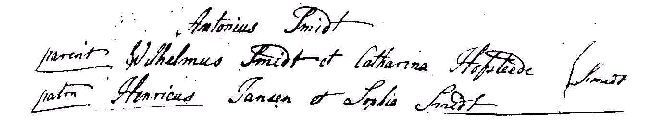 Antonius Smidt
parent Wilhelmus Smidt et Catharina Hofsteede
patrn Henricus Jansen et Sophia Smidt